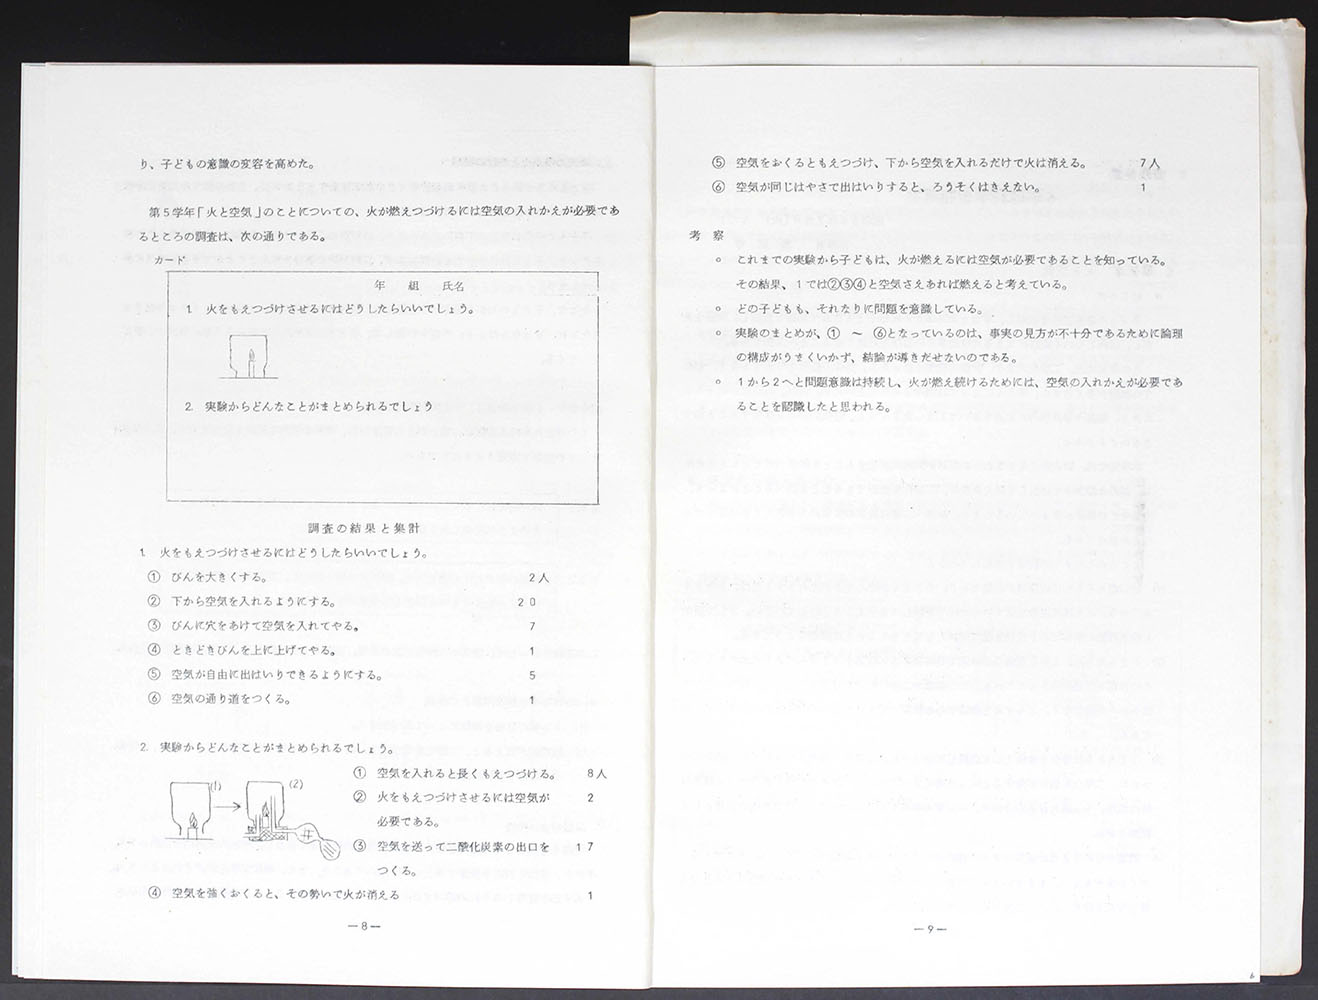 り、子どもの意識の変容を高めた。
第5学年「火と空気」のことについての、火が燃えつづけるには空気の入れかえが必要であ
るところの調査は、次の通りである。
カード
年 組 氏名
1. 火をもえつづけさせるにはどうしたらいいでしょう。
2. 実験からどんなことがまとめられるでしょう
調査の結果と集計
1. 火をもえつづけさせるにはどうしたらいいでしょう。
① びんを大きくする。 2人
② 下から空気を入れるようにする。 20
③ びんに穴をあけて空気を入れてやる。 7
④ ときどきびんを上に上げてやる。 1
⑤ 空気が自由に出はいりできるようにする。 5
⑥ 空気の通り道をつくる。 1
2. 実験からどんなことがまとめられるでしょう。
(1) (2)
① 空気を入れると長くもえつづける。 8人
② 火をもえつづけさせるには空気が 2
必要である。
③ 空気を送って二酸化炭素の出口を 17
つくる。
④ 空気を強くおくると、その勢いで火が消える 1
—8—
⑤ 空気をおくるともえつづけ、下から空気を入れるだけで火は消える。 7人
⑥ 空気が同じはやさで出はいりすると、ろうそくはきえない。 1
考 察
○ これまでの実験から子どもは、火が燃えるには空気が必要であることを知っている。
その結果、1では②③④と空気さえあれば燃えると考えている。
○ どの子どもも、それなりに問題を意識している。
○ 実験のまとめが、① ~ ⑥となっているのは、事実の見方が不十分であるために論理
の構成がうまくいかず、結論が導きだせないのである。
○ 1から2へと問題意識は持続し、火が燃え続けるためには、空気の入れかえが必要であ
ることを認識したと思われる。
—9—
6